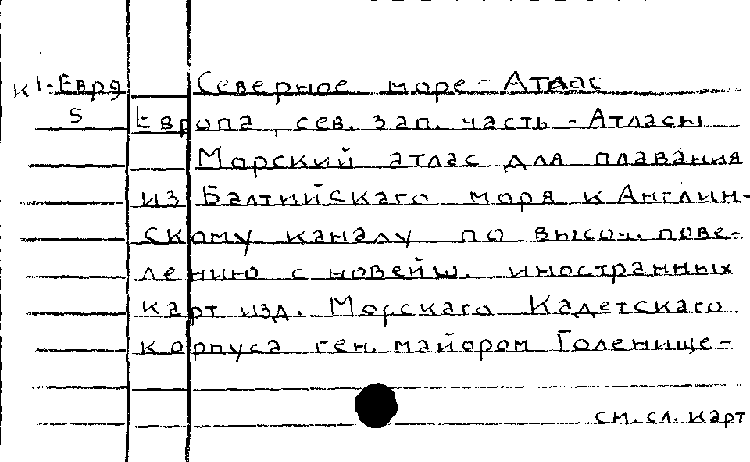 К1-Евря Северное море - Атлас
5 Европа, сев. зап. часть - Атласы
Морский атлас для плавания
из Балтийскаго моря к Англин-
скому каналу по высоч. пове-
лению с новейш. иностранных
карт изд. Морскаго Кадетскаго
корпуса ген. майором Голенище-
см. сл. карт